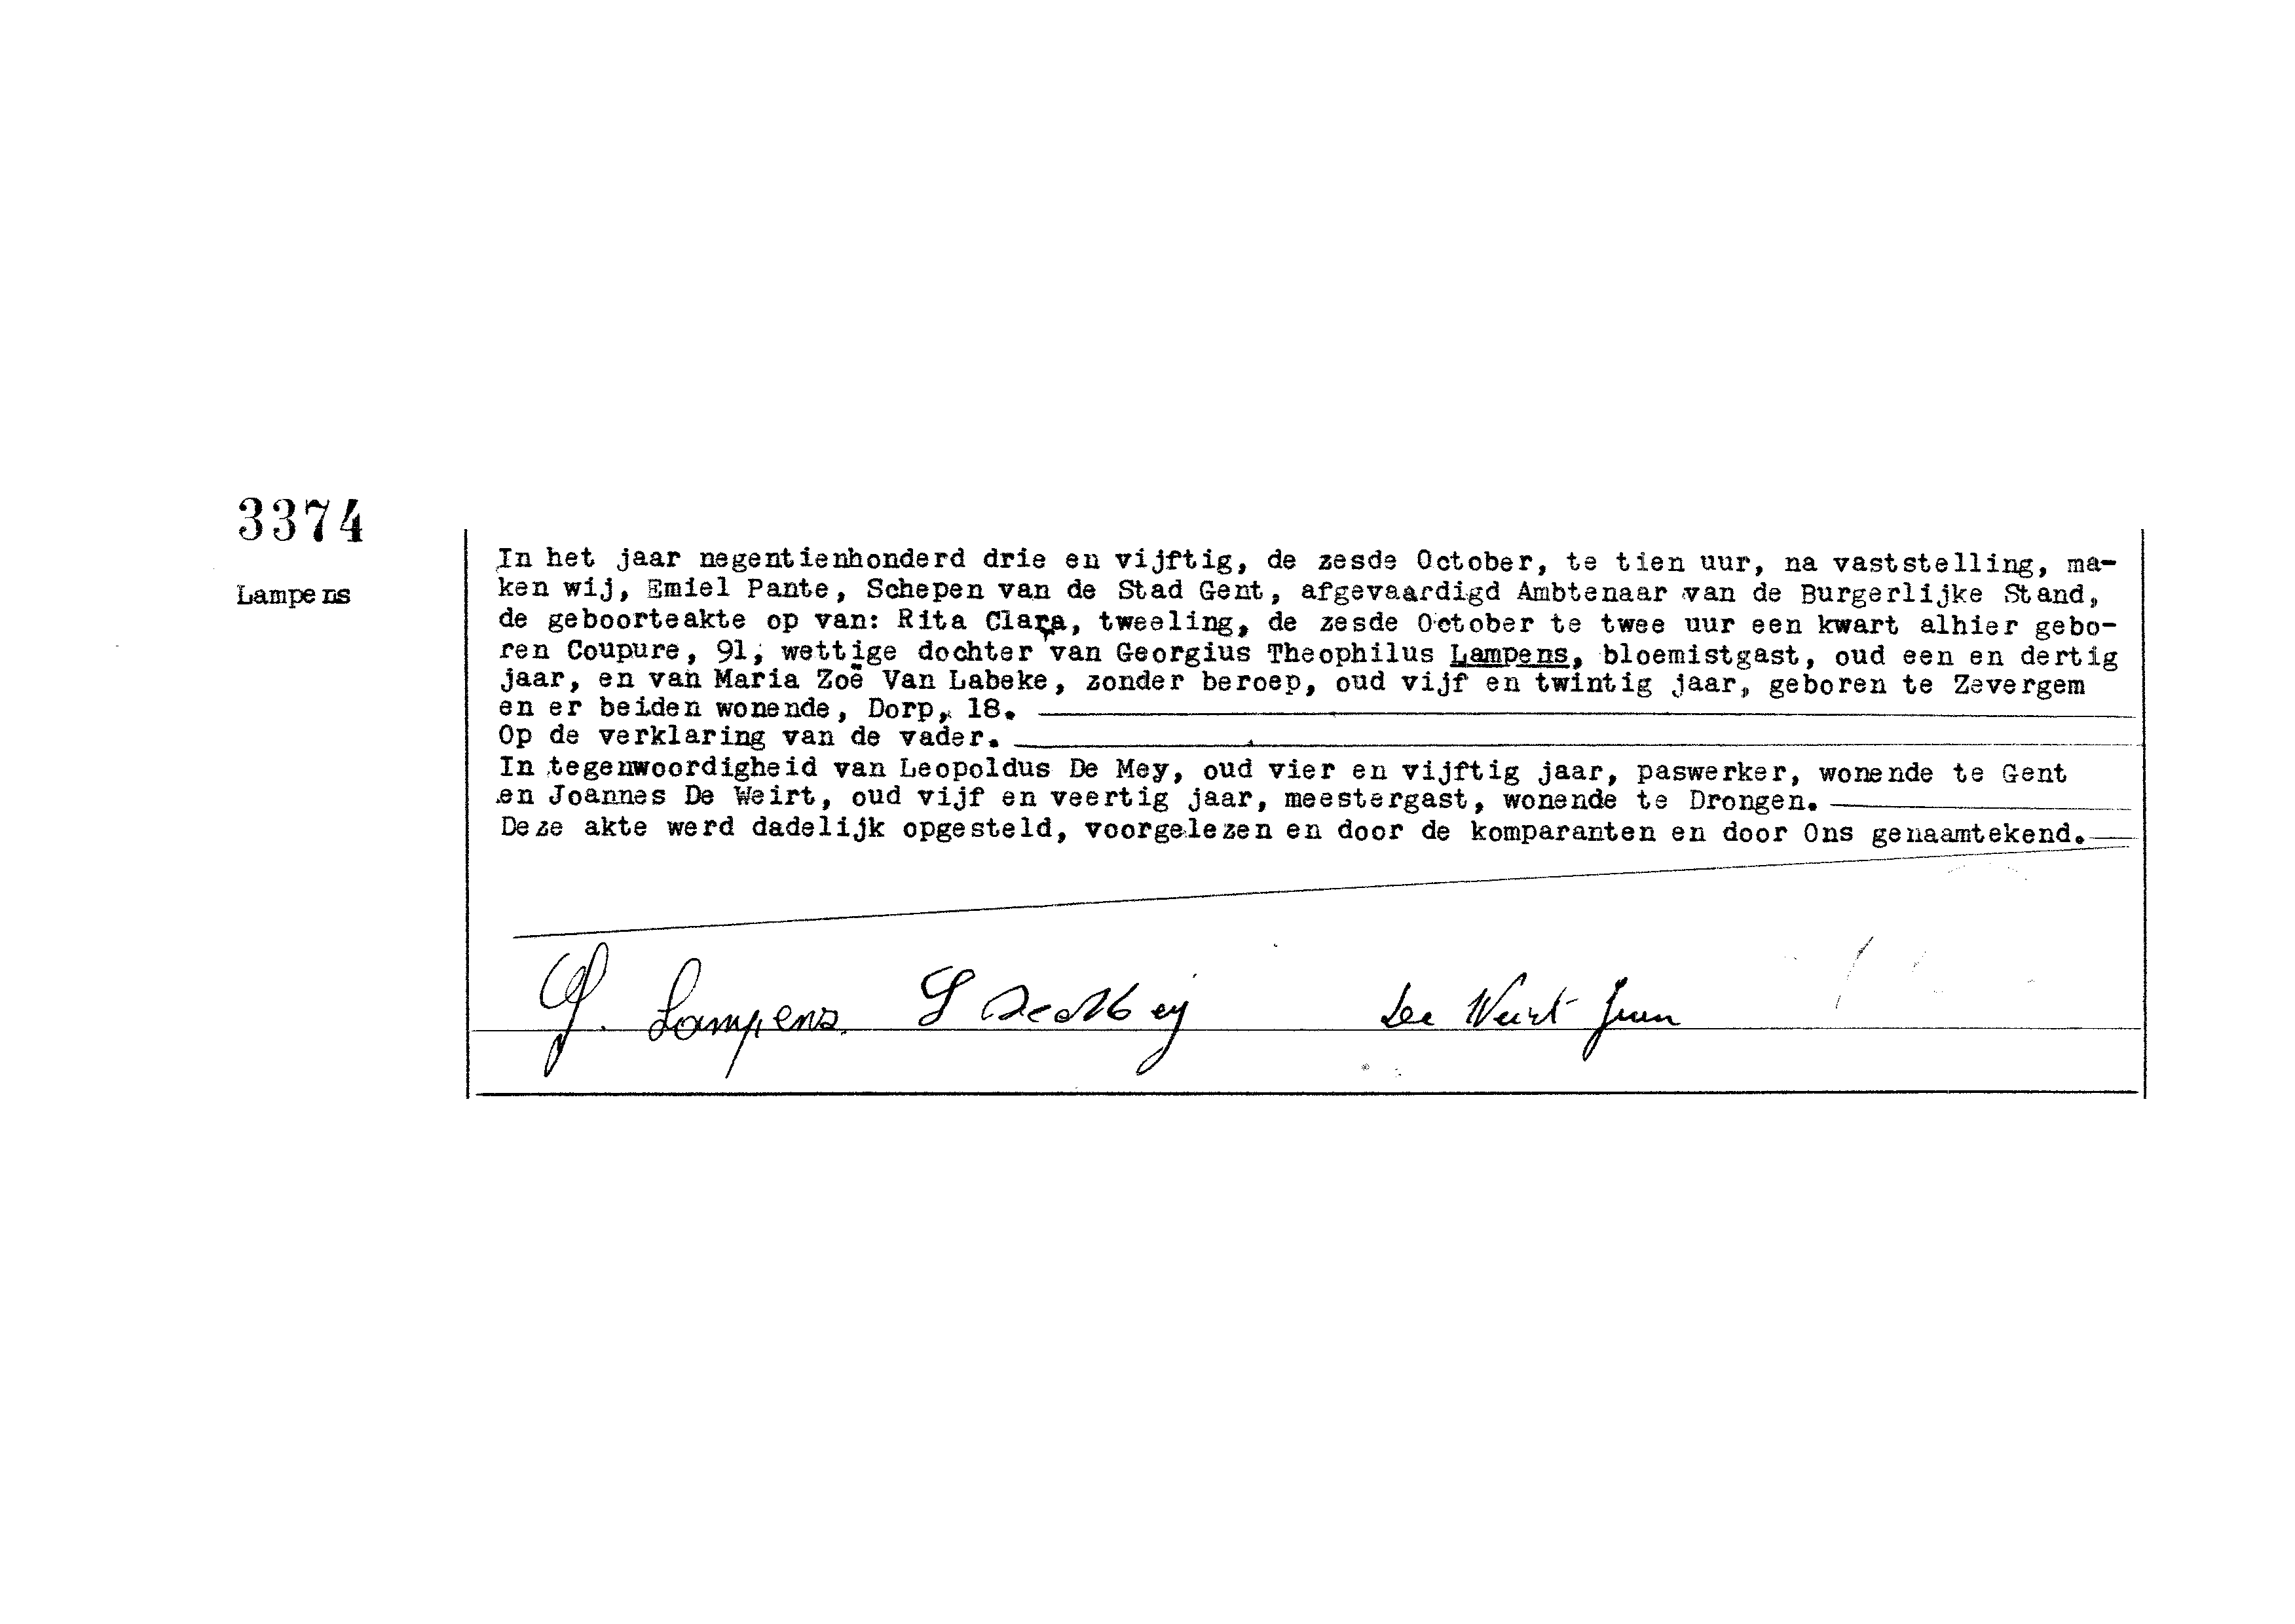 3374
Lampens
In het jaar negentienhonderd drie en vijftig, de zesde October, te tien uur, na vaststelling, ma-
ken wij, Emiel Pante, Schepen van de Stad Gent, afgevaardigd Ambtenaar van de Burgerlijke Stand,
de geboorteakte op van: Rita Clara, tweeling, de zesde October te twee uur een kwart alhier gebo-
ren Coupure, 91, wettige dochter van Georgius Theophilus Lampens, bloemistgast, oud een en dertig
jaar, en van Maria Zoë Van Labeke, zonder beroep, oud vijf en twintig jaar, geboren te Zevergem
en er beiden wonende, Dorp, 18.
Op de verklaring van de vader.
In tegenwoordigheid van Leopoldus De Mey, oud vier en vijftig jaar, paswerker, wonende te Gent
en Joannes De Weirt, oud vijf en veertig jaar, meestergast, wonende te Drongen.
Deze akte werd dadelijk opgesteld, voorgelezen en door de komparanten en door Ons genaamtekend.
Lampens. De Mey De Weirt